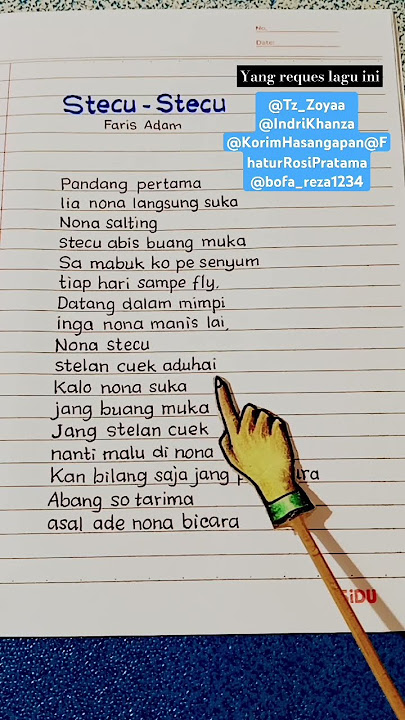 No.
Date:
Yang reques lagu ini
@Tz_Zoyaa
@IndriKhanza
@KorimHasangapan@F
haturRosiPratama
@bofa_reza1234
Stecu - Stecu
Faris Adam
Pandang pertama
lia nona langsung suka
Nona salting
Stecu abis buang muka
Sa mabuk ko pe senyum
tiap hari sampe fly.
Datang dalam mimpi
inga nona manis lai,
Nona stecu
stelan cuek aduhai
Kalo nona suka
jang buang muka
Jang stelan cuek
nanti malu di nona
Kan bilang saja jang
Abang so tarima
asal ade nona bicara
SiDU